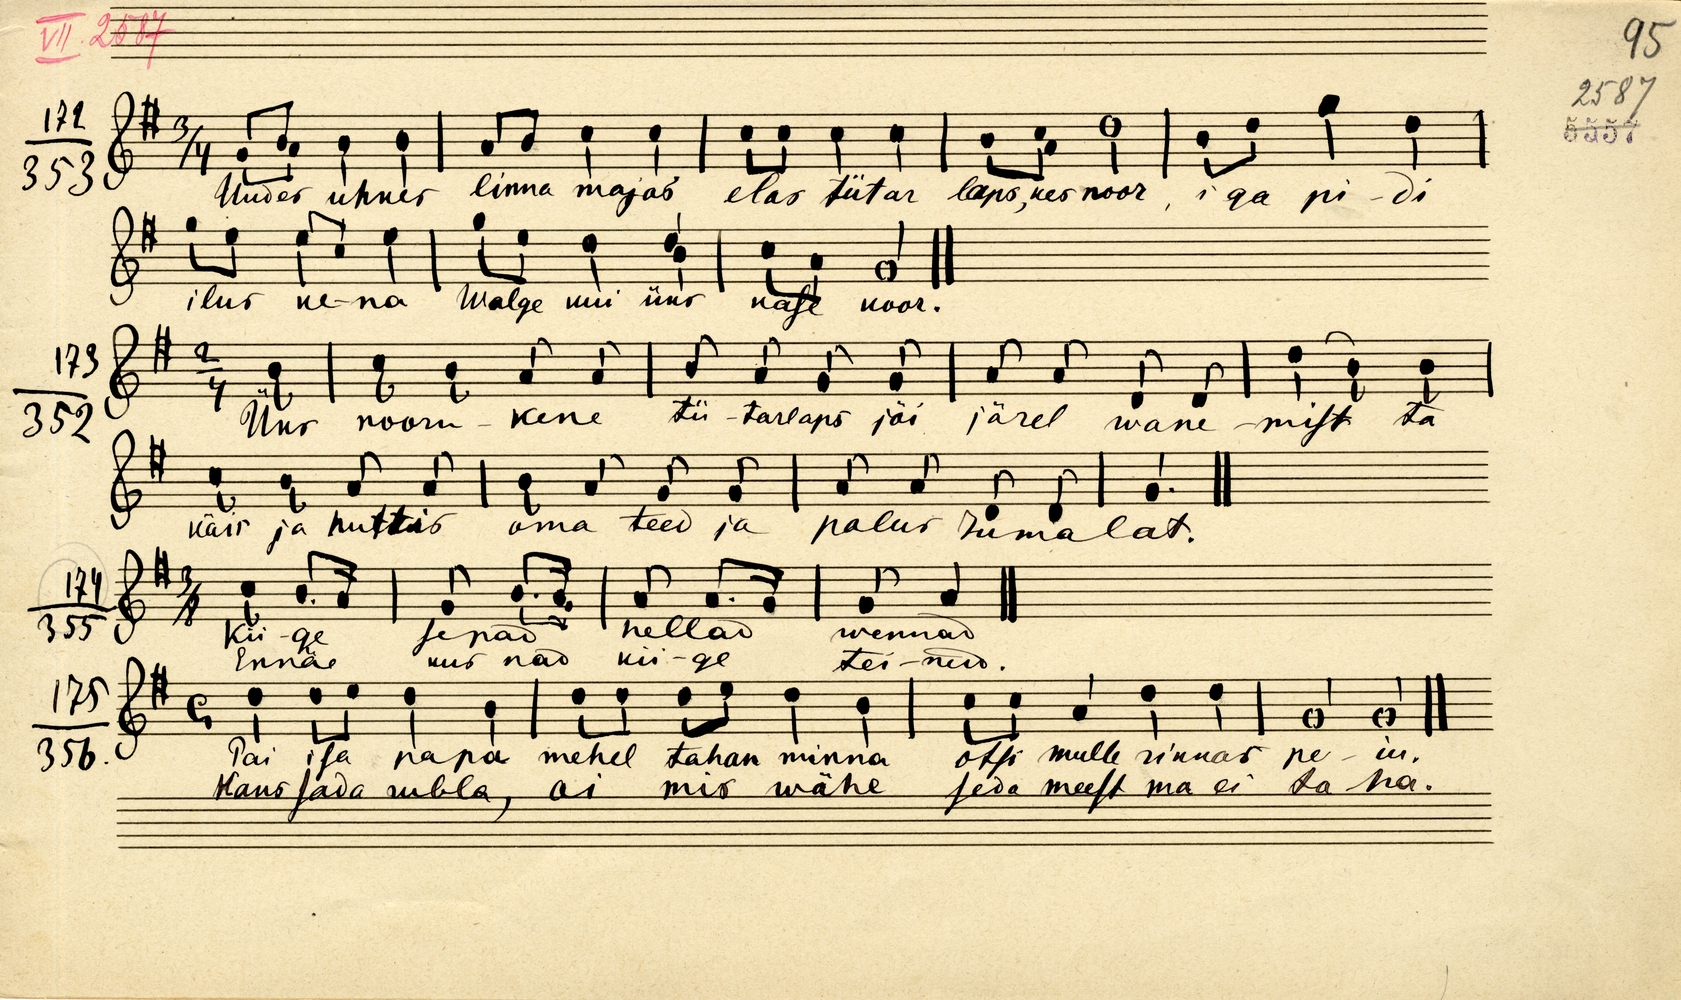 VII. 2587
95
2587
5557
172
353
3/4
Uudes uhkes linna majas elas tütar laps, kes noor, iga pi-di
ilus ne-na Walge kui üks nase noor.
173
352
2/4
Üks nooru-kene tü-tarlaps jäi järel wane-mist ta
käis ja huttis oma teed ja palus Jumalat.
174
355
3/8
Kii-ge sepad hellad wennad
Ennäe kus nad kii-ge tei-nud.
175
356.
C
Tai isa papa mehel tahan minna otsi mulle rinnas pe-iu.
Hans sada rubla, ai mis wähe seda meest ma ei ta ha.